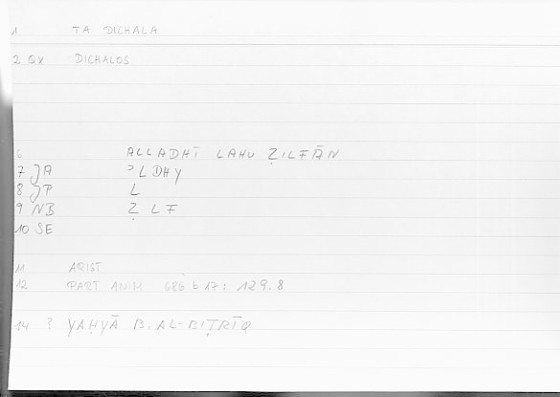 1 TA DICHALA
2 QV DICHALOS
6 ALLADHĪ LAHU ẒILFĀN
7 JA ʾLDHY
8 JP L
9 NB Ẓ LF
10 SE
11 ARIST
12 PART ANIM 686 b 17: 129.8
14 ? YAḤYĀ B. AL-BIṬRĪQ